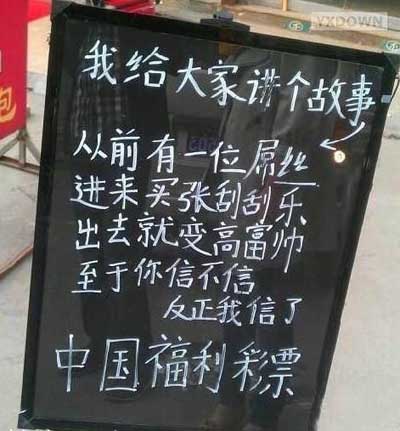 YXDOWN
我给大家讲个故事
从前有一位屌丝
进来买张刮刮乐
出去就变高富帅
至于你信不信
反正我信了
中国福利彩票